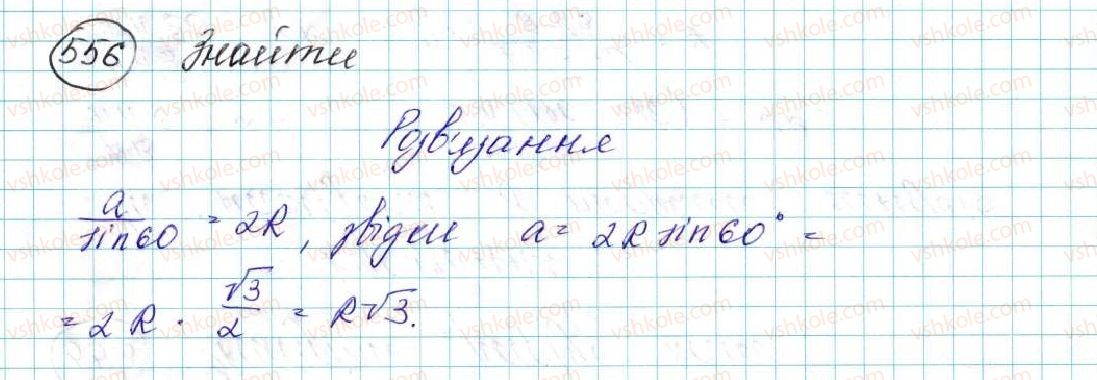 556 Знайти
Розв'язання
a/sin60 = 2R, звідки a = 2R sin60° =
= 2R · √3/2 = R√3.